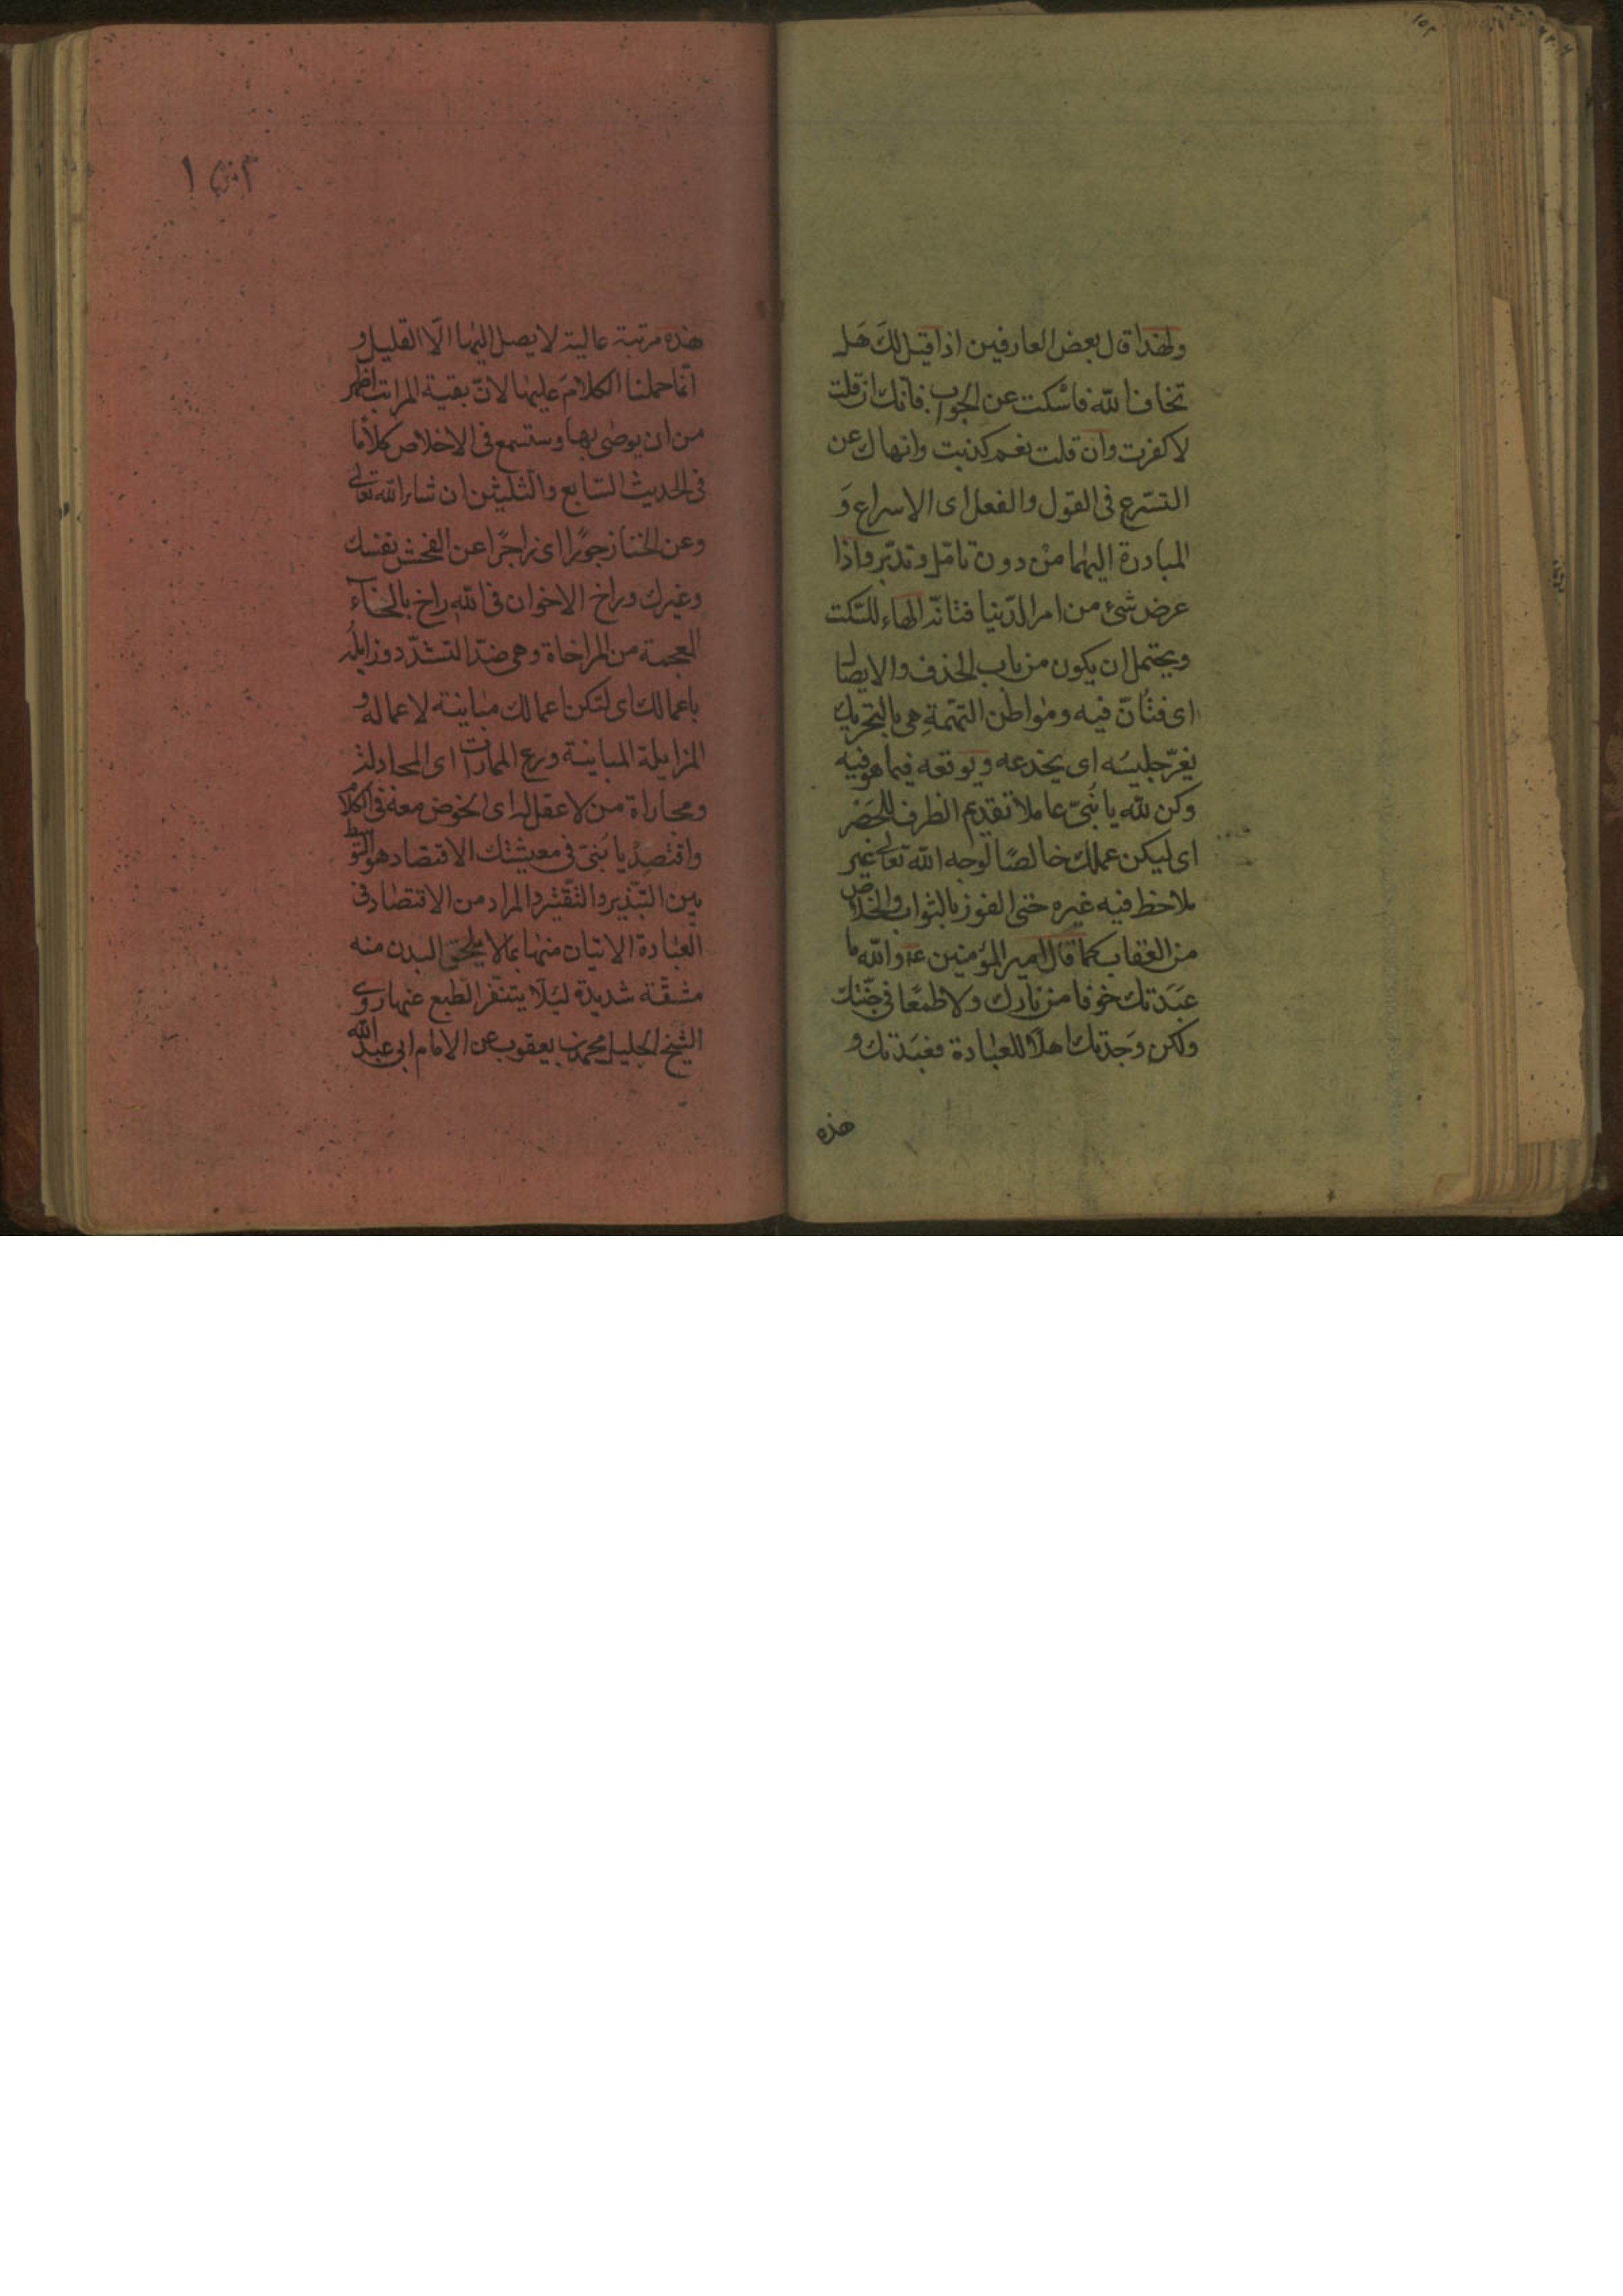 ولهذا قال بعض العارفين اذا قيل لكَ هَل
تخاف الله فاسْكت عن الجواب فانّك ان قلت
لا كفرت وان قلت نعم كذبت وانهاك عن
التسّرع فى القول والفعل اى الاسراع وَ
المبادرة اليهما منْ دون تامّل وتدبّر واذا
عرض شئ من امر الدّنيا فتانّه الهاء للسّكت
ويحتمل ان يكون من باب الحذف والايصال
اى فتُانّ فيه ومواطن التهَمةِ هى بالتحريك
يغرّ جليسَه اى يخدعه ويوقعه فيما هو فيه
وكن للّه يا بُنىّ عاملا تقديم الظرف للحَضر
اى ليكن عملك خالصًا لوجه الله تعالى غير
ملاحظ فيه غيره حتى الفوز بالثواب والخلاص
من العقاب كما قال امير المؤمنين ع والله ما
عَبَدتك خوفا من نارك ولا طمعًا فى جنّتك
ولكن وَجدتك اهلًا للعبادة فعَبَدتك و
هذه
هذه مرتبة عالية لا يصل اليها الّا القليل و
انّما حملنا الكلامَ عليها لانّ بقية المراتب اظهر
من ان يوصٰى بها وستسمع فى الاخلاص كلاما
فى الحديث السّابع والثّلثين ان شاء الله تعالى
وعن الخنا زجورًا اى زاجرًا عن الفحش نفسك
وغيرك وراخ الاخوان فى الله راخ بالخآء
المعجمة من المراخاة وهى ضدّ التشدّد وزايله
باعمالك اى لتكن اعمالك مباينة لاعماله و
المزايلة المباينة ودع الممارات اى المجادلة
ومجاراة من لا عقل له اى الخوض معه فى الكلام
واقتصِدْ يا بَنىّ فى معيشتك الاقتصاد هو التوسط
بين التّبذير والتّقتير والمراد من الاقتصاد فى
العبادة الاتيان منها بما لا يلحق البدن منه
مشقّة شديدة ليَلّا يتنفّر الطبع عنها روى
الشّيخ الجليل محمد بن يعقوب عن الامام ابى عبد الله